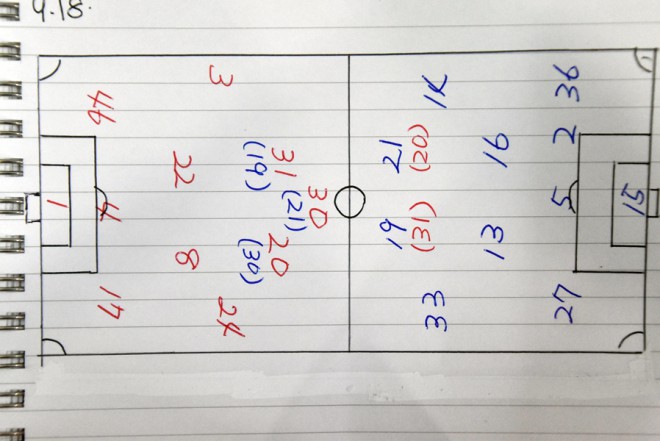 4.18.
15
36 2 5 27
16 13
33
(20) (31)
21 19
30
31 (21) 20
(19) (30)
3 24
22 8
44 4 17
1